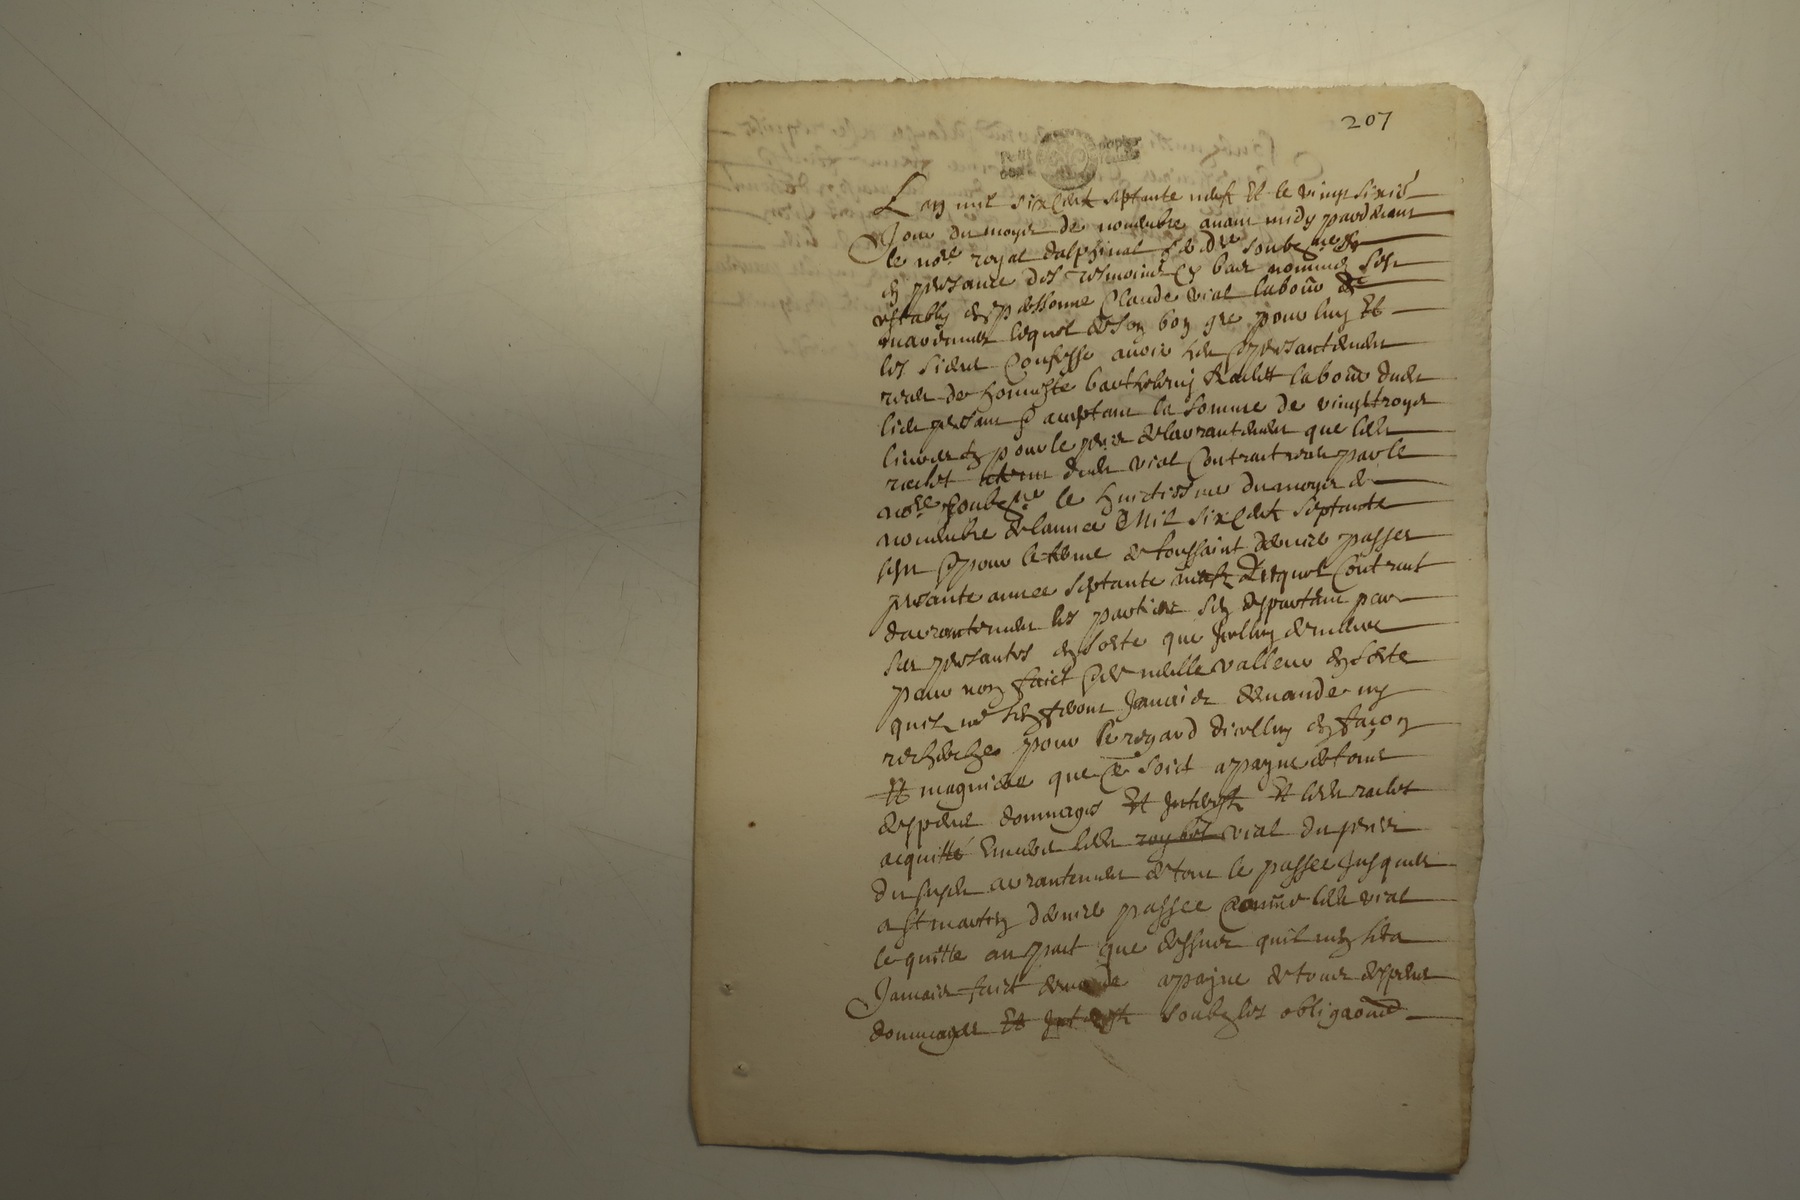 207
L an mil six cent septante neuf Et le vingt sixie
Jour du moys de novembre avant midy pardevant
le no.re royal dalphinal
en presance des tesmoins cy bas nommes sest
estably en personne Claude vial labour de
lequel de son bon gre pour luy Et
les siens Confesse avoir heu presantement
receu de honneste barthelemy Rachet labour dudit
lieu presant acceptant la somme de vingt troys
livres pour le prix de que ledit
rachet dudit vial Contract receu par le
no.re le huictiesme du moys de
novembre de lannee Mil six cent septante
sept pour le terme de toussaint derniere passee
presante annee septante neuf Duquel Contract
les parties sen departent par
ses presantes en sorte que Jcelluy demeure
pour non faict de nulle valleur en sorte
quil ne sen feront Jamais demande ny
recherche pour le regard dicelluy en facon
Et magniere que ce soict a payne de tous
despens dommages Et Jnterestz Et ledit rachet
acquitte Envers ledit vial du prix
du susdit de tout le passe Jusques
a st martin derniere passee Comme ledit vial
le quitte au pact que dessus quil nen sera
Jamais faict demande a payne de tous despens
dommages Et Jnterestz soubz les obliga͠ons